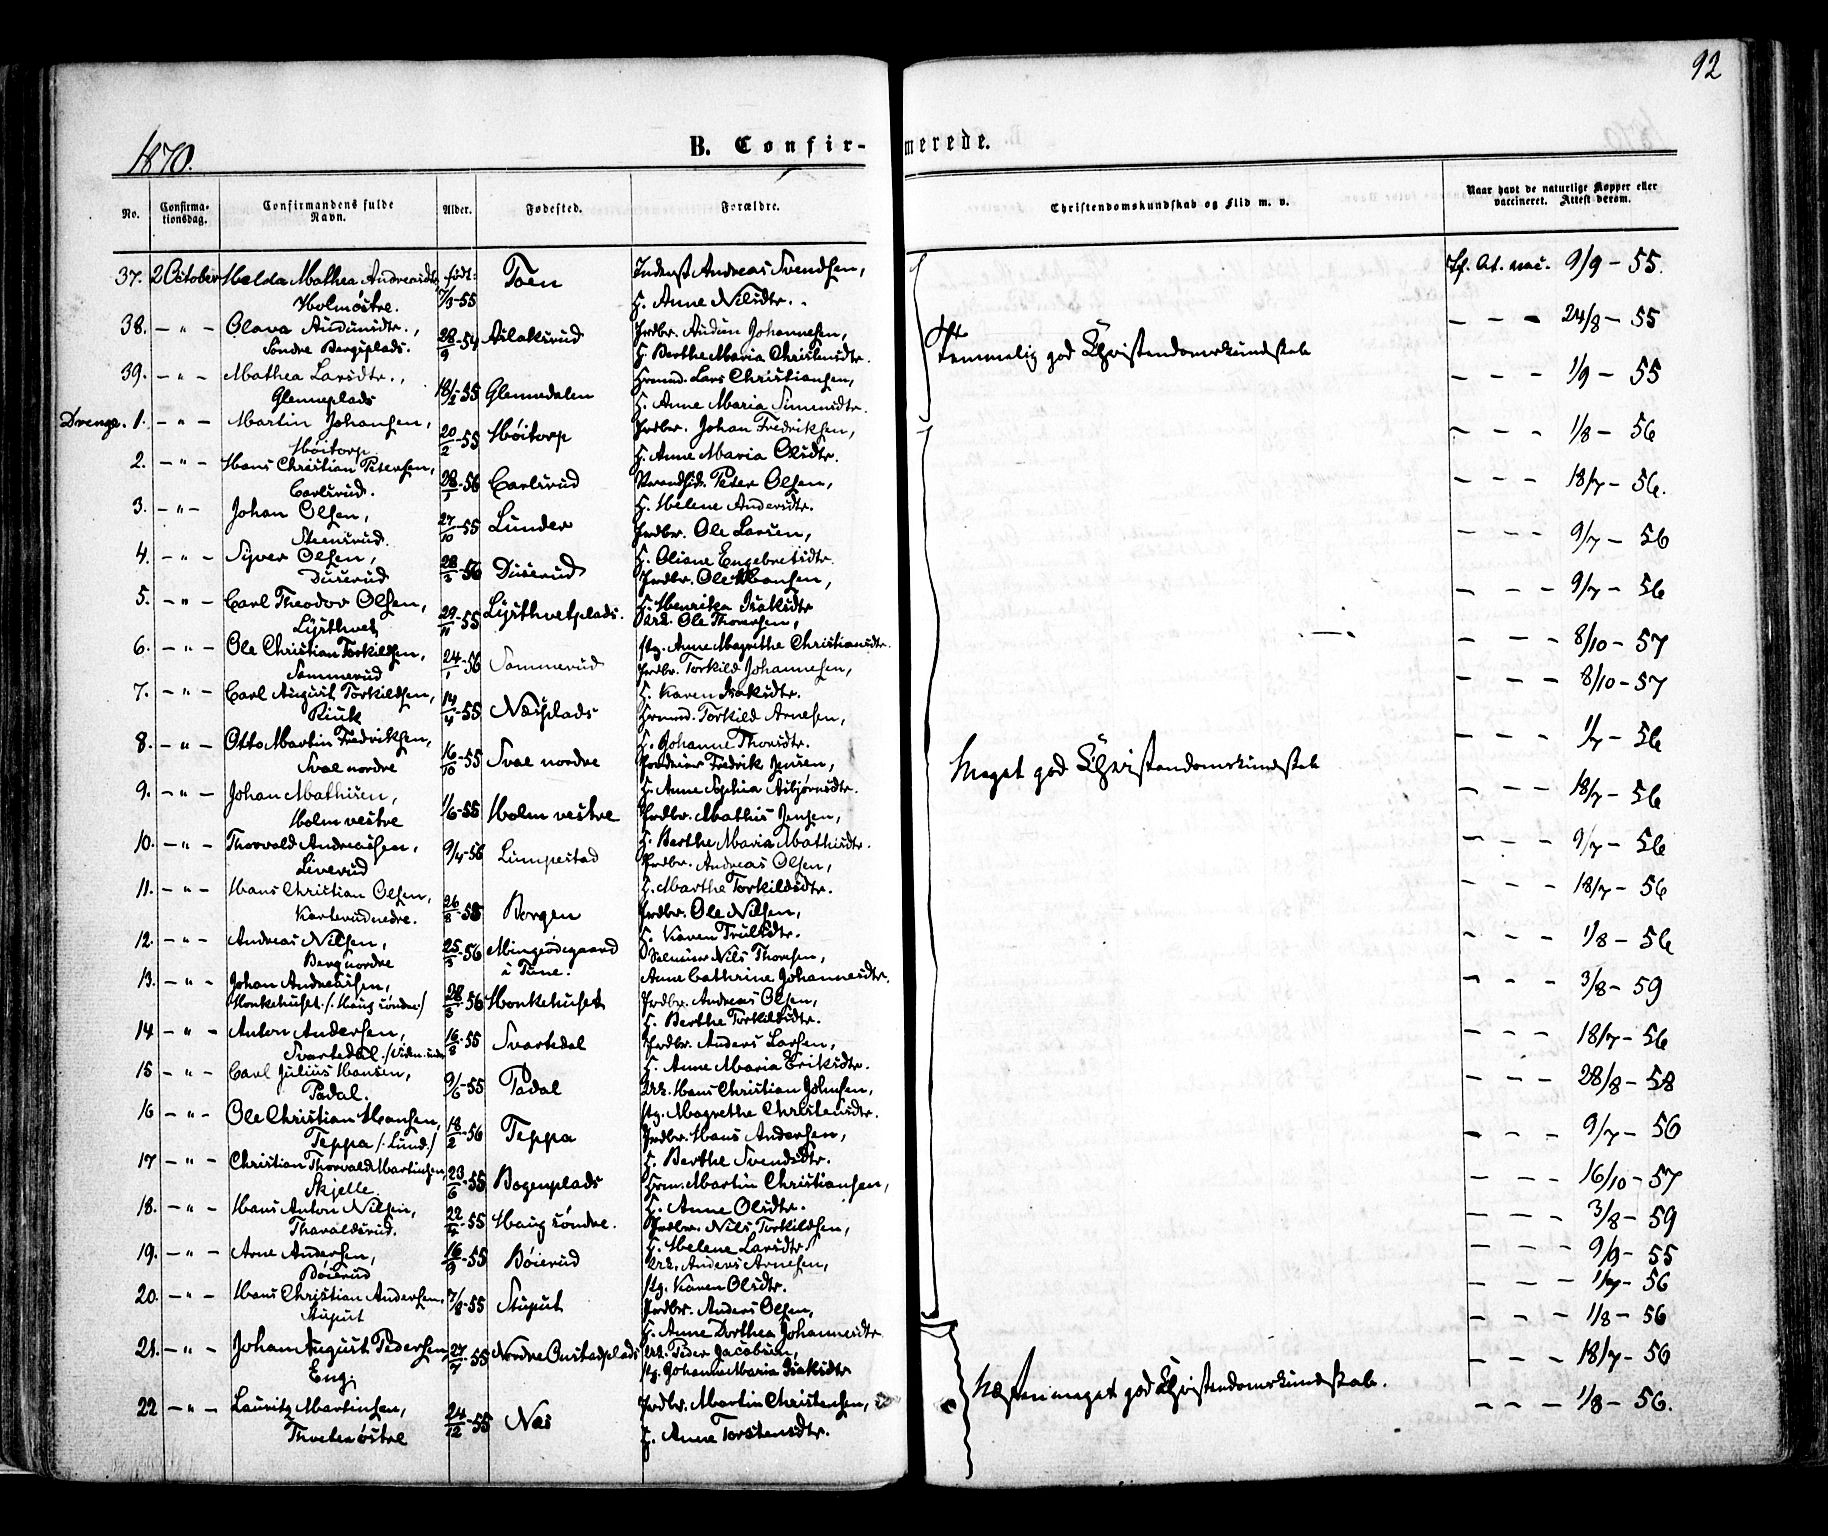 92
1870.
B. Confir-
merede.
No.
Confirma-
tionsdag.
Confirmandens fulde
Navn.
Alder.
Fødested.
Forældre.
Christendomskundskab og Flid m. v.
Naar havt de naturlige Kopper eller
vaccineret. Attest derom.
37. 2 October Helda Mathea Andreasdtr. født: Toen Inderst Andreas Svendsen, 9/9 - 55.
Holmøstre. 7/3-55 H. Anne Nilsdtr.
38. - " - Olava Audunsdtr., 28/9-54 Aslaksrud Grdbr. Audun Johannesen, - - - 24/8 - 55
Søndre Bergsplads. H. Berthe Maria Christensdtr.
Temmelig god Christendomskundskab
39. - " - Mathea Larsdtr., 18/2-55 Glennedalen Huusmd. Lars Christiansen, - - - 1/9 - 55
Glenneplads H. Anne Maria Simensdtr.
Drenge. 1. - " - Martin Johansen, 20/2-55 Høitorp Grdbr. Johan Fredriksen, - - - 1/8 - 56
Høitorp. H. Anne Maria Olsdtr.
2. - " - Hans Christian Petersen, 28/1-56 Carlsrud Strandsid. Peter Olsen, - - - 18/7 - 56.
Carlsrud. H. Helene Andersdtr.
3. - " - Johan Olsen, 27/10-55 Lunder Grdbr. Ole Larsen, - - - 9/7 - 56
Steensrud. H. Oliane Engebretsdtr.
4. - " - Syver Olsen, 28/3-56 Duserud Grdbr. Ole Hansen, - - - 9/7 - 56
Duserud H. Henrika Isaksdtr
5. - " - Carl Theodor Olsen, 29/11-55 Lysthvetplads. Ole Thoresen, - - - 8/10 - 57
Lysthvet Anne Magrethe Christiansdtr.
6. - " - Ole Christian Torkildsen, 24/1-56 Sommerud Grdbr. Torkild Johannesen, - - - 8/10 - 57
Sommerud H. Karen Isaksdtr.
7. - " - Carl August Torkildsen, 14/4-55 Næsplads Torkild Arnesen, - - - 1/7 - 56
H. Johanne Thorsdtr.
8. - " - Otto Martin Fredriksen, 16/10-55 Svae nordre Fredrik Jensen, - - - 18/7 - 56
Svae nordre H. Anne Sophia Asbjørnsdtr.
Meget god Christendomskundskab
9. - " - Johan Mathisen, 1/6-55 Holm vestre Grdbr. Mathis Jensen, - - - 9/7 - 56
Holm vestre H. Berthe Maria Mathisdtr.
10. - " - Thorvald Andreassen, 9/4-56 Limpestad Grdbr. Andreas Olsen, - - - 18/7 - 56
Leverud H. Marthe Torkildsdtr.
11. - " - Hans Christian Olsen, 26/8-55 Borgen Grdbr. Ole Nilsen, - - - 1/8 - 56
Karterud nedre. H. Karen Trulsdtr.
12. - " - Andreas Nilsen, 25/3-56 Mingeødegaard Nils Thoresen, - - - 3/8 - 59
Berg nordre i Tune. Anne Cathrine Johannesdtr.
13. - " - Johan Andreassen, 28/3-56 Honkehuset Grdbr. Andreas Olsen, - - - 18/7 - 56
Honkehuset /: Haug søndre :/ H. Berthe Torkildsdtr.
14 - " - Anton Andersen, 16/8-55 Svartedal Grdbr. Anders Larsen, - - - 28/8 - 58
Svartedal H. Anne Maria Eriksdtr.
15 - " - Carl Julius Hansen, 9/6-55 Padal Hans Christian Johnsen, - - - 9/7 - 56
Padal. Magrethe Christensdtr.
16 - " - Ole Christian Hansen, 18/2-56 Teppa Grdbr. Hans Andersen, - - - 16/10 - 57
Teppa /: Lund :/ H. Berthe Svendsdtr.
17 - " - Christian Thorvald Martinsen, 23/6-55 Bogenplads Martin Christiansen, - - - 3/8 - 59
Skjelle. H. Anne Olsdtr.
18. - " - Hans Anton Nilsen, 22/4-55 Haug søndre. Grdbr. Nils Torkildsen, - - - 9/9 - 55
Tharaldsrud. H. Helene Larsdtr.
19. - " - Arne Andersen, 16/9-55 Bøierud Anders Arnesen, - - - 1/7 - 56
Bøierud Karen Olsdtr.
20. - " - Hans Christian Andersen, 7/8-55 Stuput Grdbr. Anders Olsen, - - - 1/8 - 56
Stuput H. Anne Dorthea Johannesdtr
21. - " - Johan August Pedersen 27/7-55 Nordre Onstadplads Peder Jacobsen, - - - 18/7 - 56
Eng. Johanne Maria Isaksdtr
Næsten meget god Christendomskundskab.
22 - " - Lauritz Martinsen, 24/12-55 Næs Grdbr. Martin Christensen, - - - 1/8 - 56.
Thveten østre H. Anne Torstensdtr.